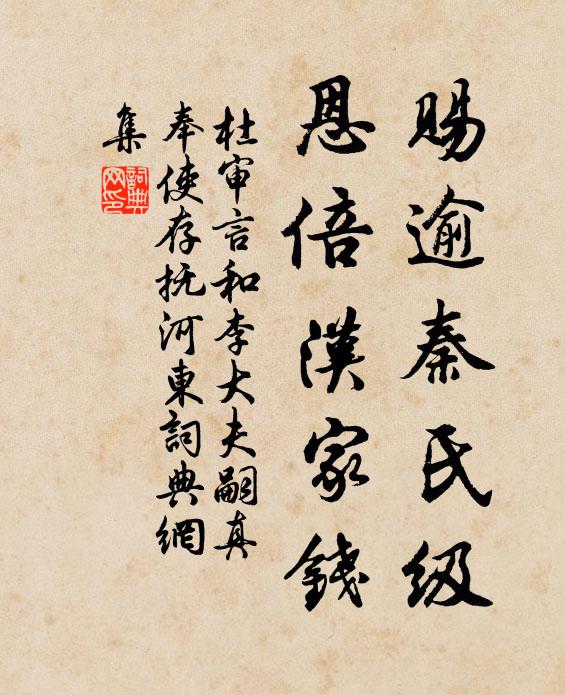 赐逾秦氏级
恩倍漢家錢
杜审言和李大夫嗣真
奉使存抚河東詞典網
集
詞典
网印